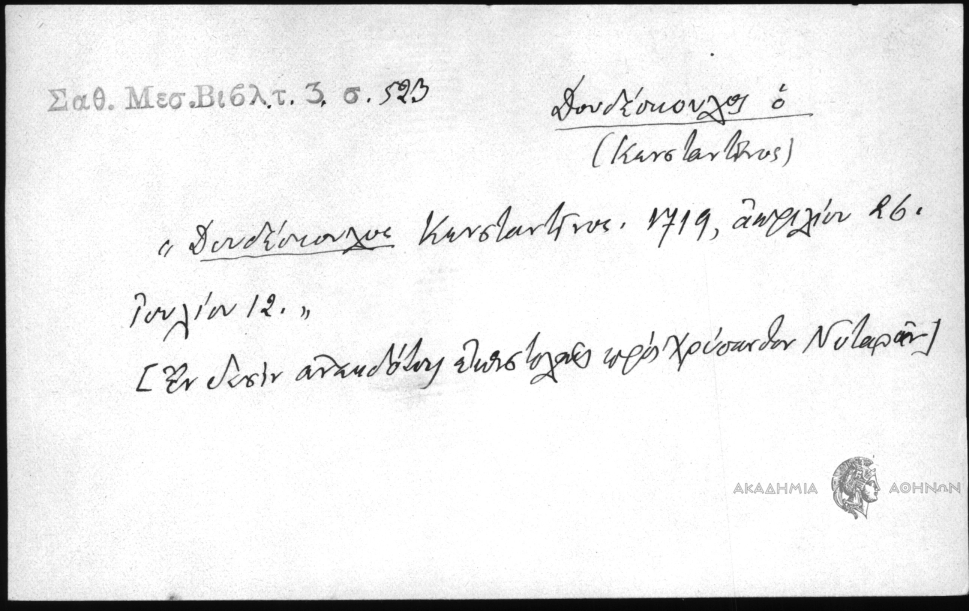 Σαθ. Μεσ. Βιβλ. τ. 3. σ. 523
Δουδέσκουλος ὁ
(Κωνσταντῖνος)
"Δουδέσκουλος Κωνσταντῖνος. 1719, ἀπριλίου 26.
Ἰουλίου 12."
[Ἐν ἀνεκδότοις ἐπιστολαῖς πρός Χρύσανθον Νοταρᾶν]
ΑΚΑΔΗΜΙΑ ΑΘΗΝΩΝ